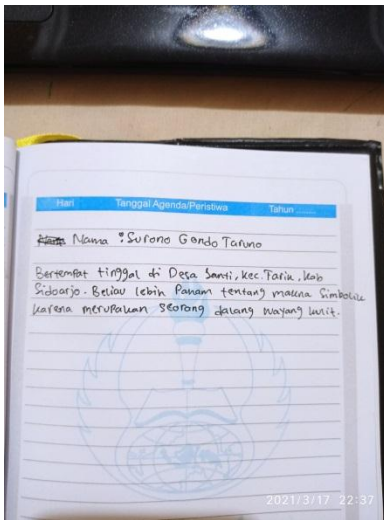 Hari Tanggal Agenda/Peristiwa Tahun ........
Nama : Surono Gondo Taruno
Bertempat tinggal di Desa Santi, Kec. Tarik, Kab
Sidoarjo. Beliau lebih Paham tentang makna Simbolik
karena merupakan seorang dalang wayang kulit.
2021/3/17 22:37